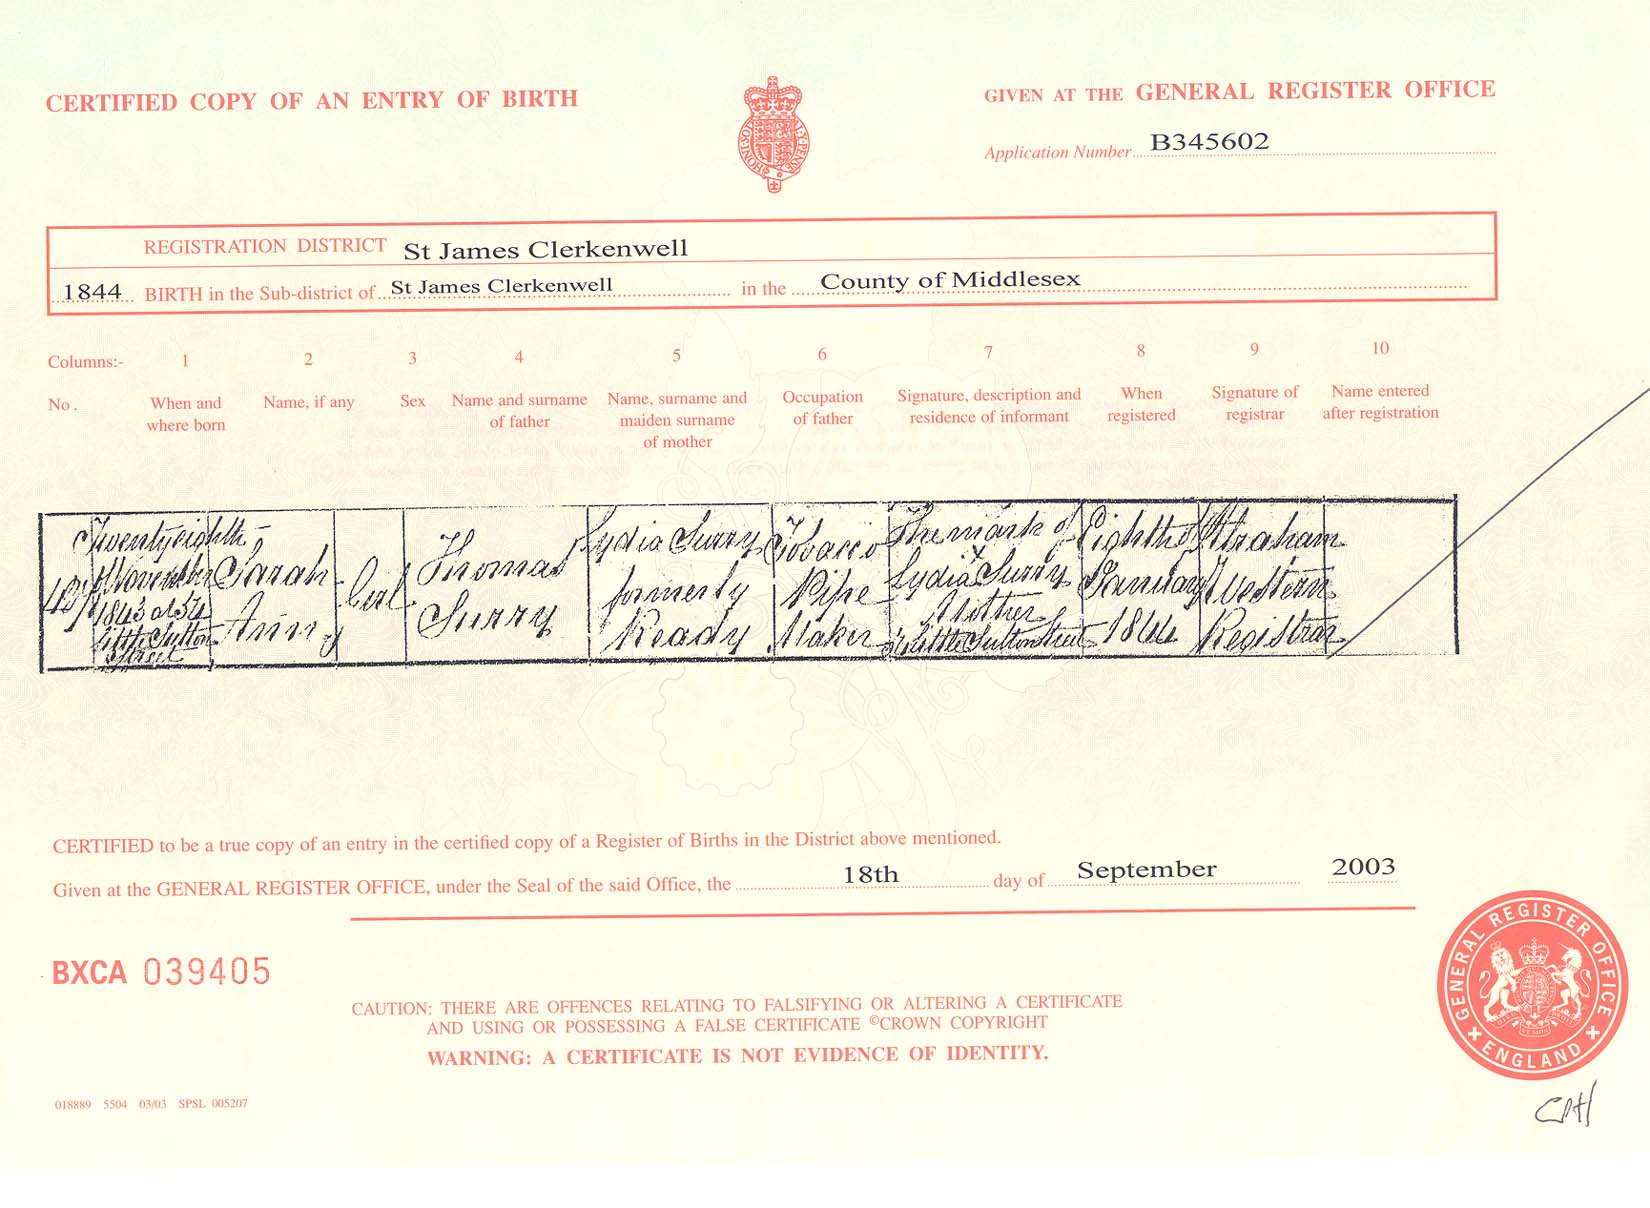 CERTIFIED COPY OF AN ENTRY OF BIRTH
GIVEN AT THE GENERAL REGISTER OFFICE
Application Number B345602
HONI SOIT
Y PENSE
REGISTRATION DISTRICT St James Clerkenwell
1844 BIRTH in the Sub-district of St James Clerkenwell in the County of Middlesex
Columns:- 1 2 3 4 5 6 7 8 9 10
No. When and where born
Name, if any
Sex
Name and surname of father
Name, surname and maiden surname of mother
Occupation of father
Signature, description and residence of informant
When registered
Signature of registrar
Name entered after registration
Twentyeighth
of November
1843 at 54
Little Sutton
Street
Sarah
Ann
Girl
Thomas
Surry
Lydia Surry
formerly
Ready
Tobacco
Pipe
Maker
The mark of
X
Lydia Surry
Mother
Little Sutton Street
Eighth
January
1844
Abraham
Western
Registrar
CERTIFIED to be a true copy of an entry in the certified copy of a Register of Births in the District above mentioned.
Given at the GENERAL REGISTER OFFICE, under the Seal of the said Office, the 18th day of September 2003
BXCA 039405
CAUTION: THERE ARE OFFENCES RELATING TO FALSIFYING OR ALTERING A CERTIFICATE
AND USING OR POSSESSING A FALSE CERTIFICATE ©CROWN COPYRIGHT
WARNING: A CERTIFICATE IS NOT EVIDENCE OF IDENTITY.
GENERAL REGISTER OFFICE
ENGLAND
018889 5504 03/03 SPSL 005207